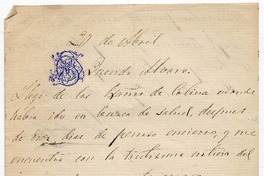 30 de Abril
Querido Alvaro:
Llego de los Baños de Colina adonde
había ido en busca de salud, despues
de días de penoso encierro, y me
encuentro con la tristísima noticia del